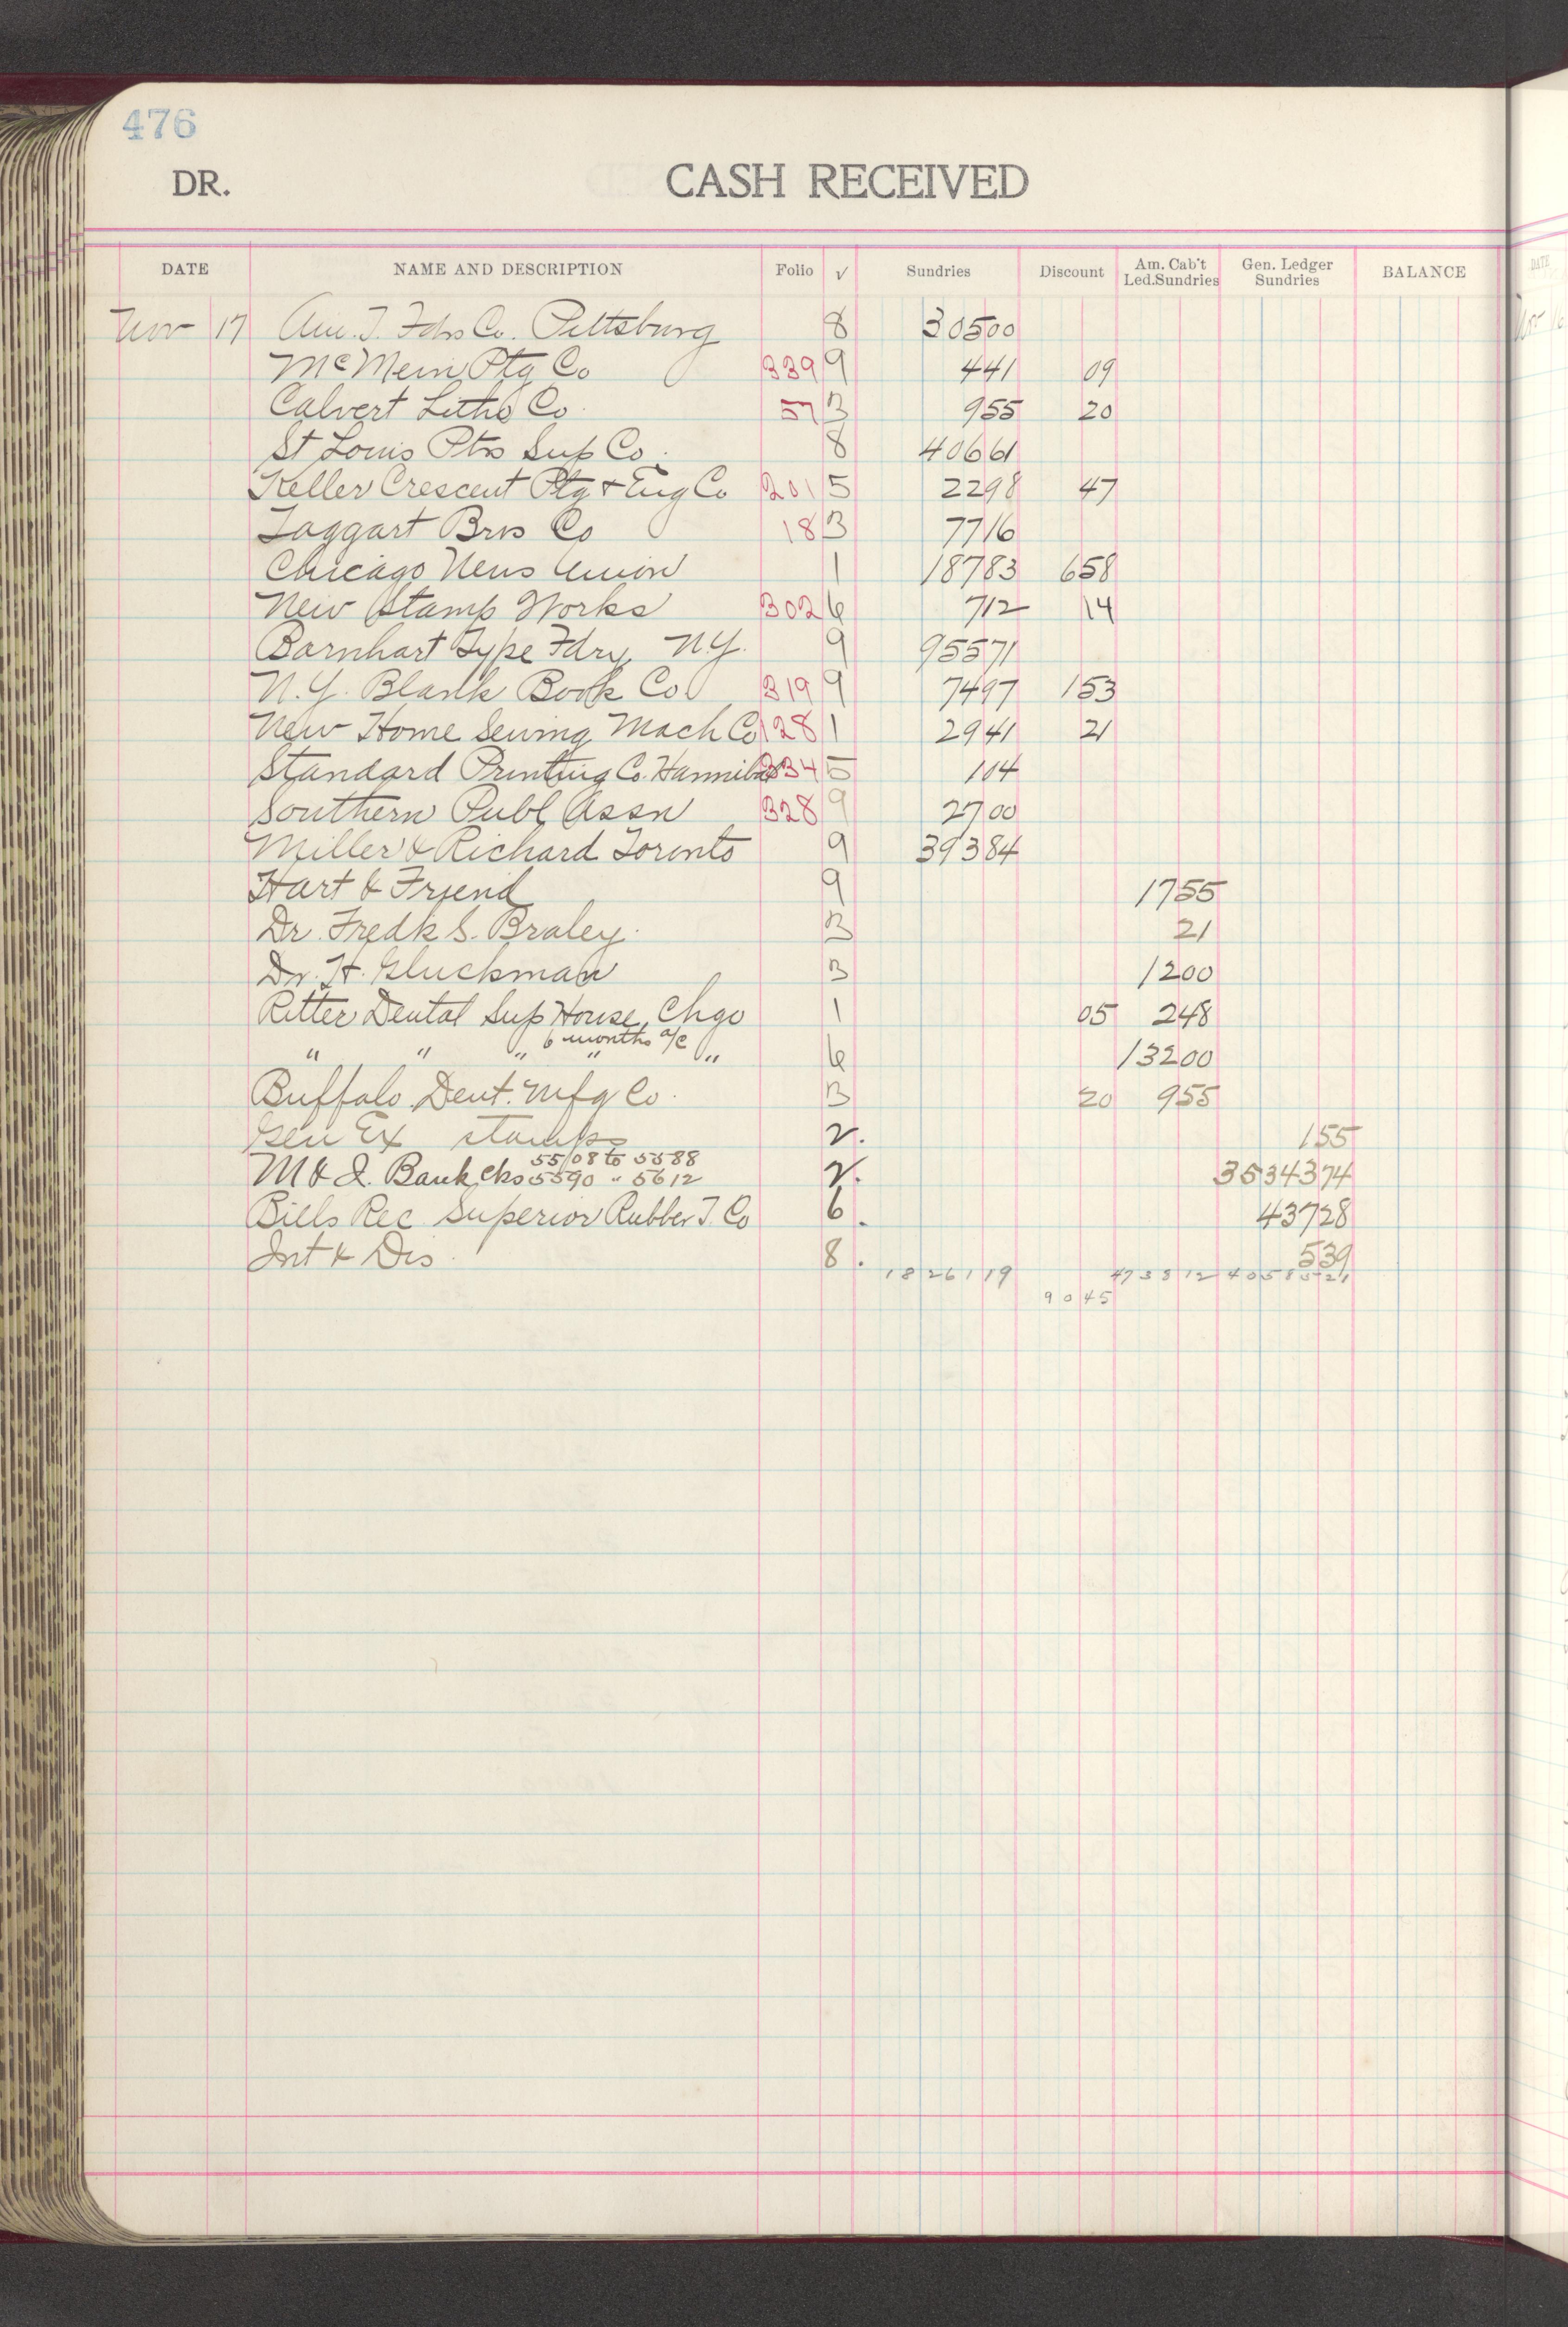 476
DR. CASH RECEIVED
DATE NAME AND DESCRIPTION Folio √ Sundries Discount Am. Cab't Led.Sundries Gen. Ledger Sundries BALANCE
Nov 17 Am. T. Fdrs Co. Pittsburg 8 30500
McMein Ptg Co 339 9 441 09
Calvert Litho Co. 57 3 955 20
St Louis Ptrs Sup Co. 8 40661
Keller Crescent Ptg & Eng Co 201 5 2298 47
Taggart Bros Co 18 3 7716
Chicago News Union 1 18783 658
New Stamp Works 302 6 712 14
Barnhart Type Fdry, N.Y. 9 95571
N.Y. Blank Book Co. 319 9 7497 153
New Home Sewing Mach Co 128 1 2941 21
Standard Printing Co. Hannibal 334 5 104
Southern Publ Assn 328 9 2700
Miller & Richard Toronto 9 39384
Hart & Friend 9 1755
Dr. Fredk S. Braley. 3 21
Dr. H. Gluckman 3 1200
Ritter Dental Sup House, Chgo 1 05 248
" " " 6 months a/c " " 6 13200
Buffalo Dent. Mfg Co. 3 20 955
Gen Ex stamps 2. 155
M & I. Bank cks 5508 to 5588
5590 " 5612 2. 3534374
Bills Rec Superior Rubber T. Co 6. 43728
Int & Dis. 8. 539
182611 19 4738 12 4058521
9045